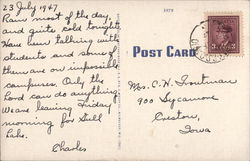 23 July 1947
Rain most of the day,
and quite cold tonight.
Have been talking with
students and some of
them are on impossible
campuses. Only the
Lord can do anything.
We are leaving Friday
morning for Gull
Lake.
Charles
POST CARD
Mrs. C. H. Troutman
900 Sycamore
Creston,
Iowa